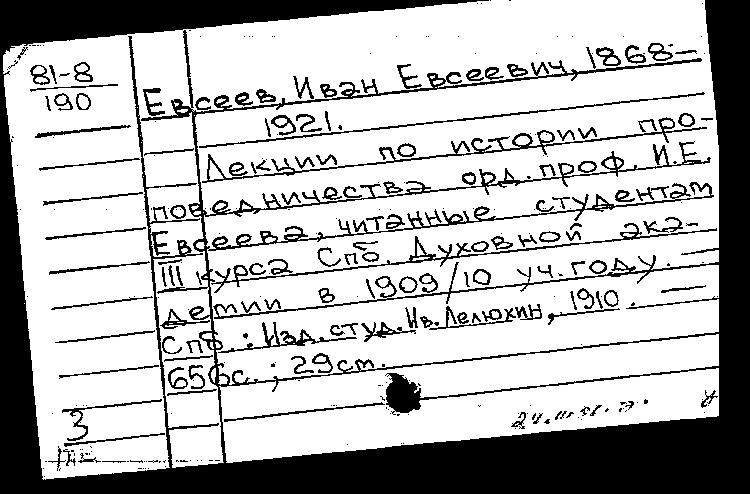 81-8
190
Евсеев, Иван Евсеевич, 1868-
1921.
Лекции по истории про-
поведничества орд. проф. И.Е.
Евсеева, читанные студентам
III курса Спб. Духовной ака-
демии в 1909/10 уч. году. —
Спб.: Изд. студ. Ив. Лелюхин, 1910. —
656с.; 29см.
3